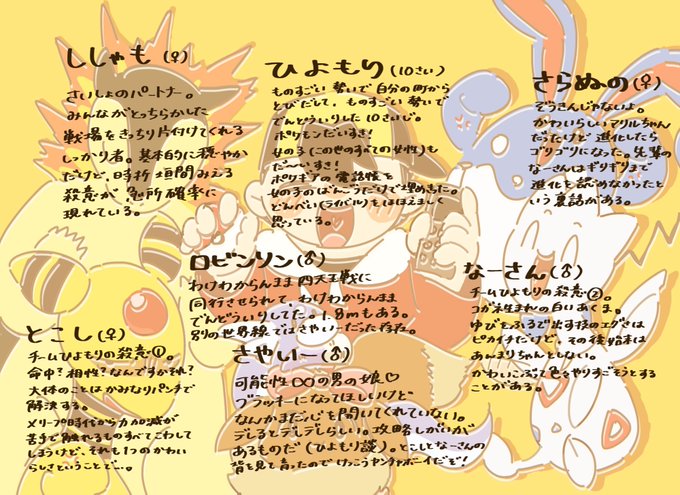 ししゃも(♀)
さいしょのパートナー。
みんながとっちらかした
戦場をきっちり片付けてくれる
しっかり者。基本的に穏やか
だけど、時折垣間みえる
殺意が急所確率に
現れている。
ひよもり(10さい)
ものすごい勢いで自分の町から
とびだして、ものすごい勢いで
でんどういりした10さいじ。
ポケモンだいすき!
女の子(この世のすべての女性)も
だ〜いすき!
ポケギアの電話帳を
女の子のばんごうだけで埋めきった。
どんべい(ライバル)をほほえましく
思っている。
さらぬの(♀)
ぞうさんじゃないよ。
かわいらしいマリルちゃん
だったけど進化したら
ゴリゴリになった。先輩の
なーさんはギリギリまで
進化を認めなかったと
いう裏話がある。
ロビンソン(♂)
わけわからんまま四天王戦に
同行させられて、わけわからんまま
でんどういりしてた。1.8mもある。
別の世界線ではさやい〜だった存在。
なーさん(♂)
チームひよもりの殺意②。
コガネ生まれの白いあくま。
ゆびをふるで出す技のエグさは
ピカイチだけど、その後始末は
あんまりちゃんとしない。
かわいこぶって色々やりすごそうとする
ことがある。
とこし(♀)
チームひよもりの殺意①。
命中?相性?なんですかそれ?
大体のことはかみなりパンチで
解決する。
メリープ時代から力加減が
苦手で触れるものすべてこわして
しまうけど、それも1つのかわい
らしさということで…。
さやい〜(♂)
可能性∞の男の娘♡
ブラッキーになってほしいけど
なんかまだ心を開いてくれていない。
デレるとデレデレらしい。攻略しがいが
あるものだ(ひよもり談)。とことなーさんの
背を見て育ったのでけっこうヤンチャボーイだぞ!